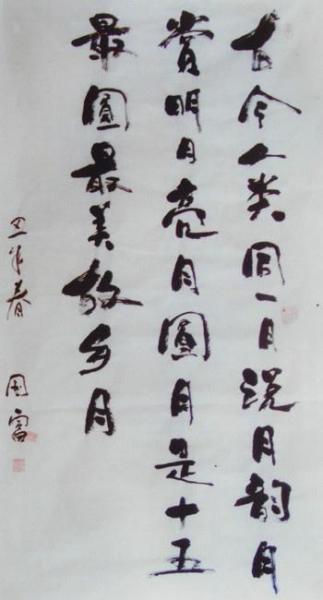 古今人类同一月说月韵月
赏明月亮月圓月是十五
最圓最美故乡月
春
国富